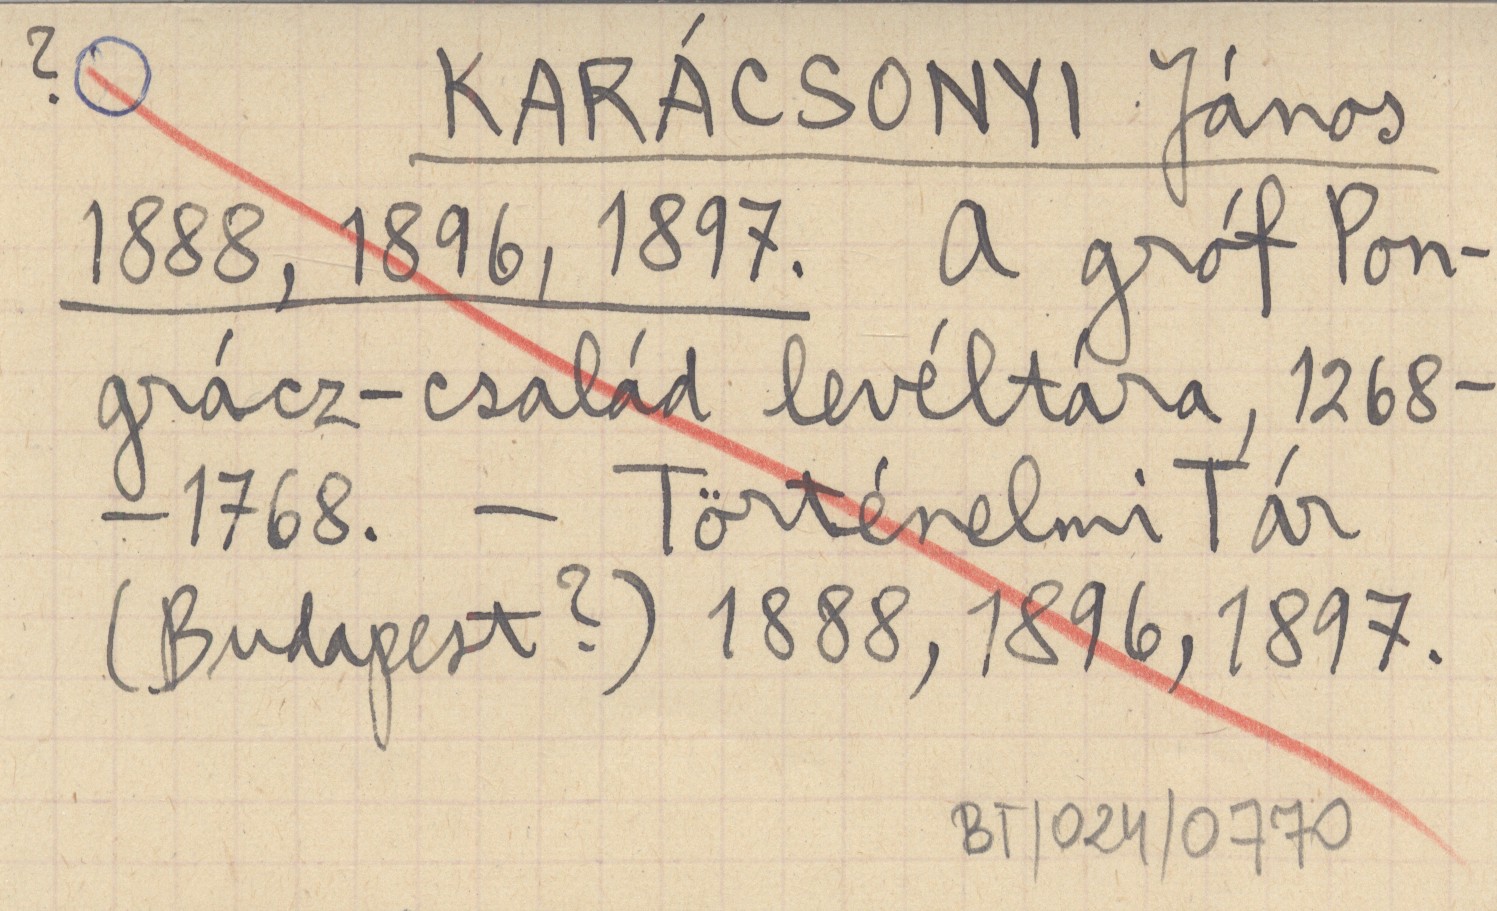 ? KARÁCSONYI János
1888, 1896, 1897. A gróf Pon-
grácz-család levéltára, 1268-
-1768. - Történelmi Tár
(Budapest?) 1888, 1896, 1897.
BT/024/0770